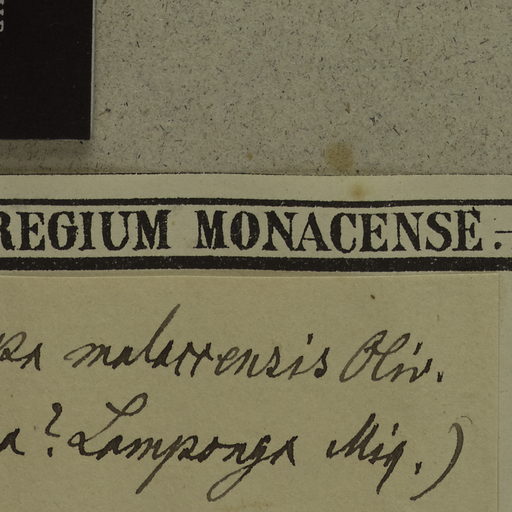 REGIUM MONACENSE.
malaccensis Oliv.
a? Lamponga Miq.)